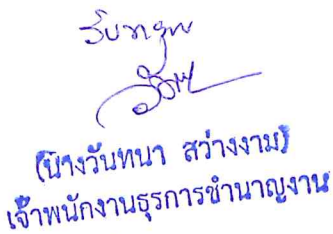 รับทราบ
(นางวันทนา สว่างงาม)
เจ้าพนักงานธุรการชำนาญงาน